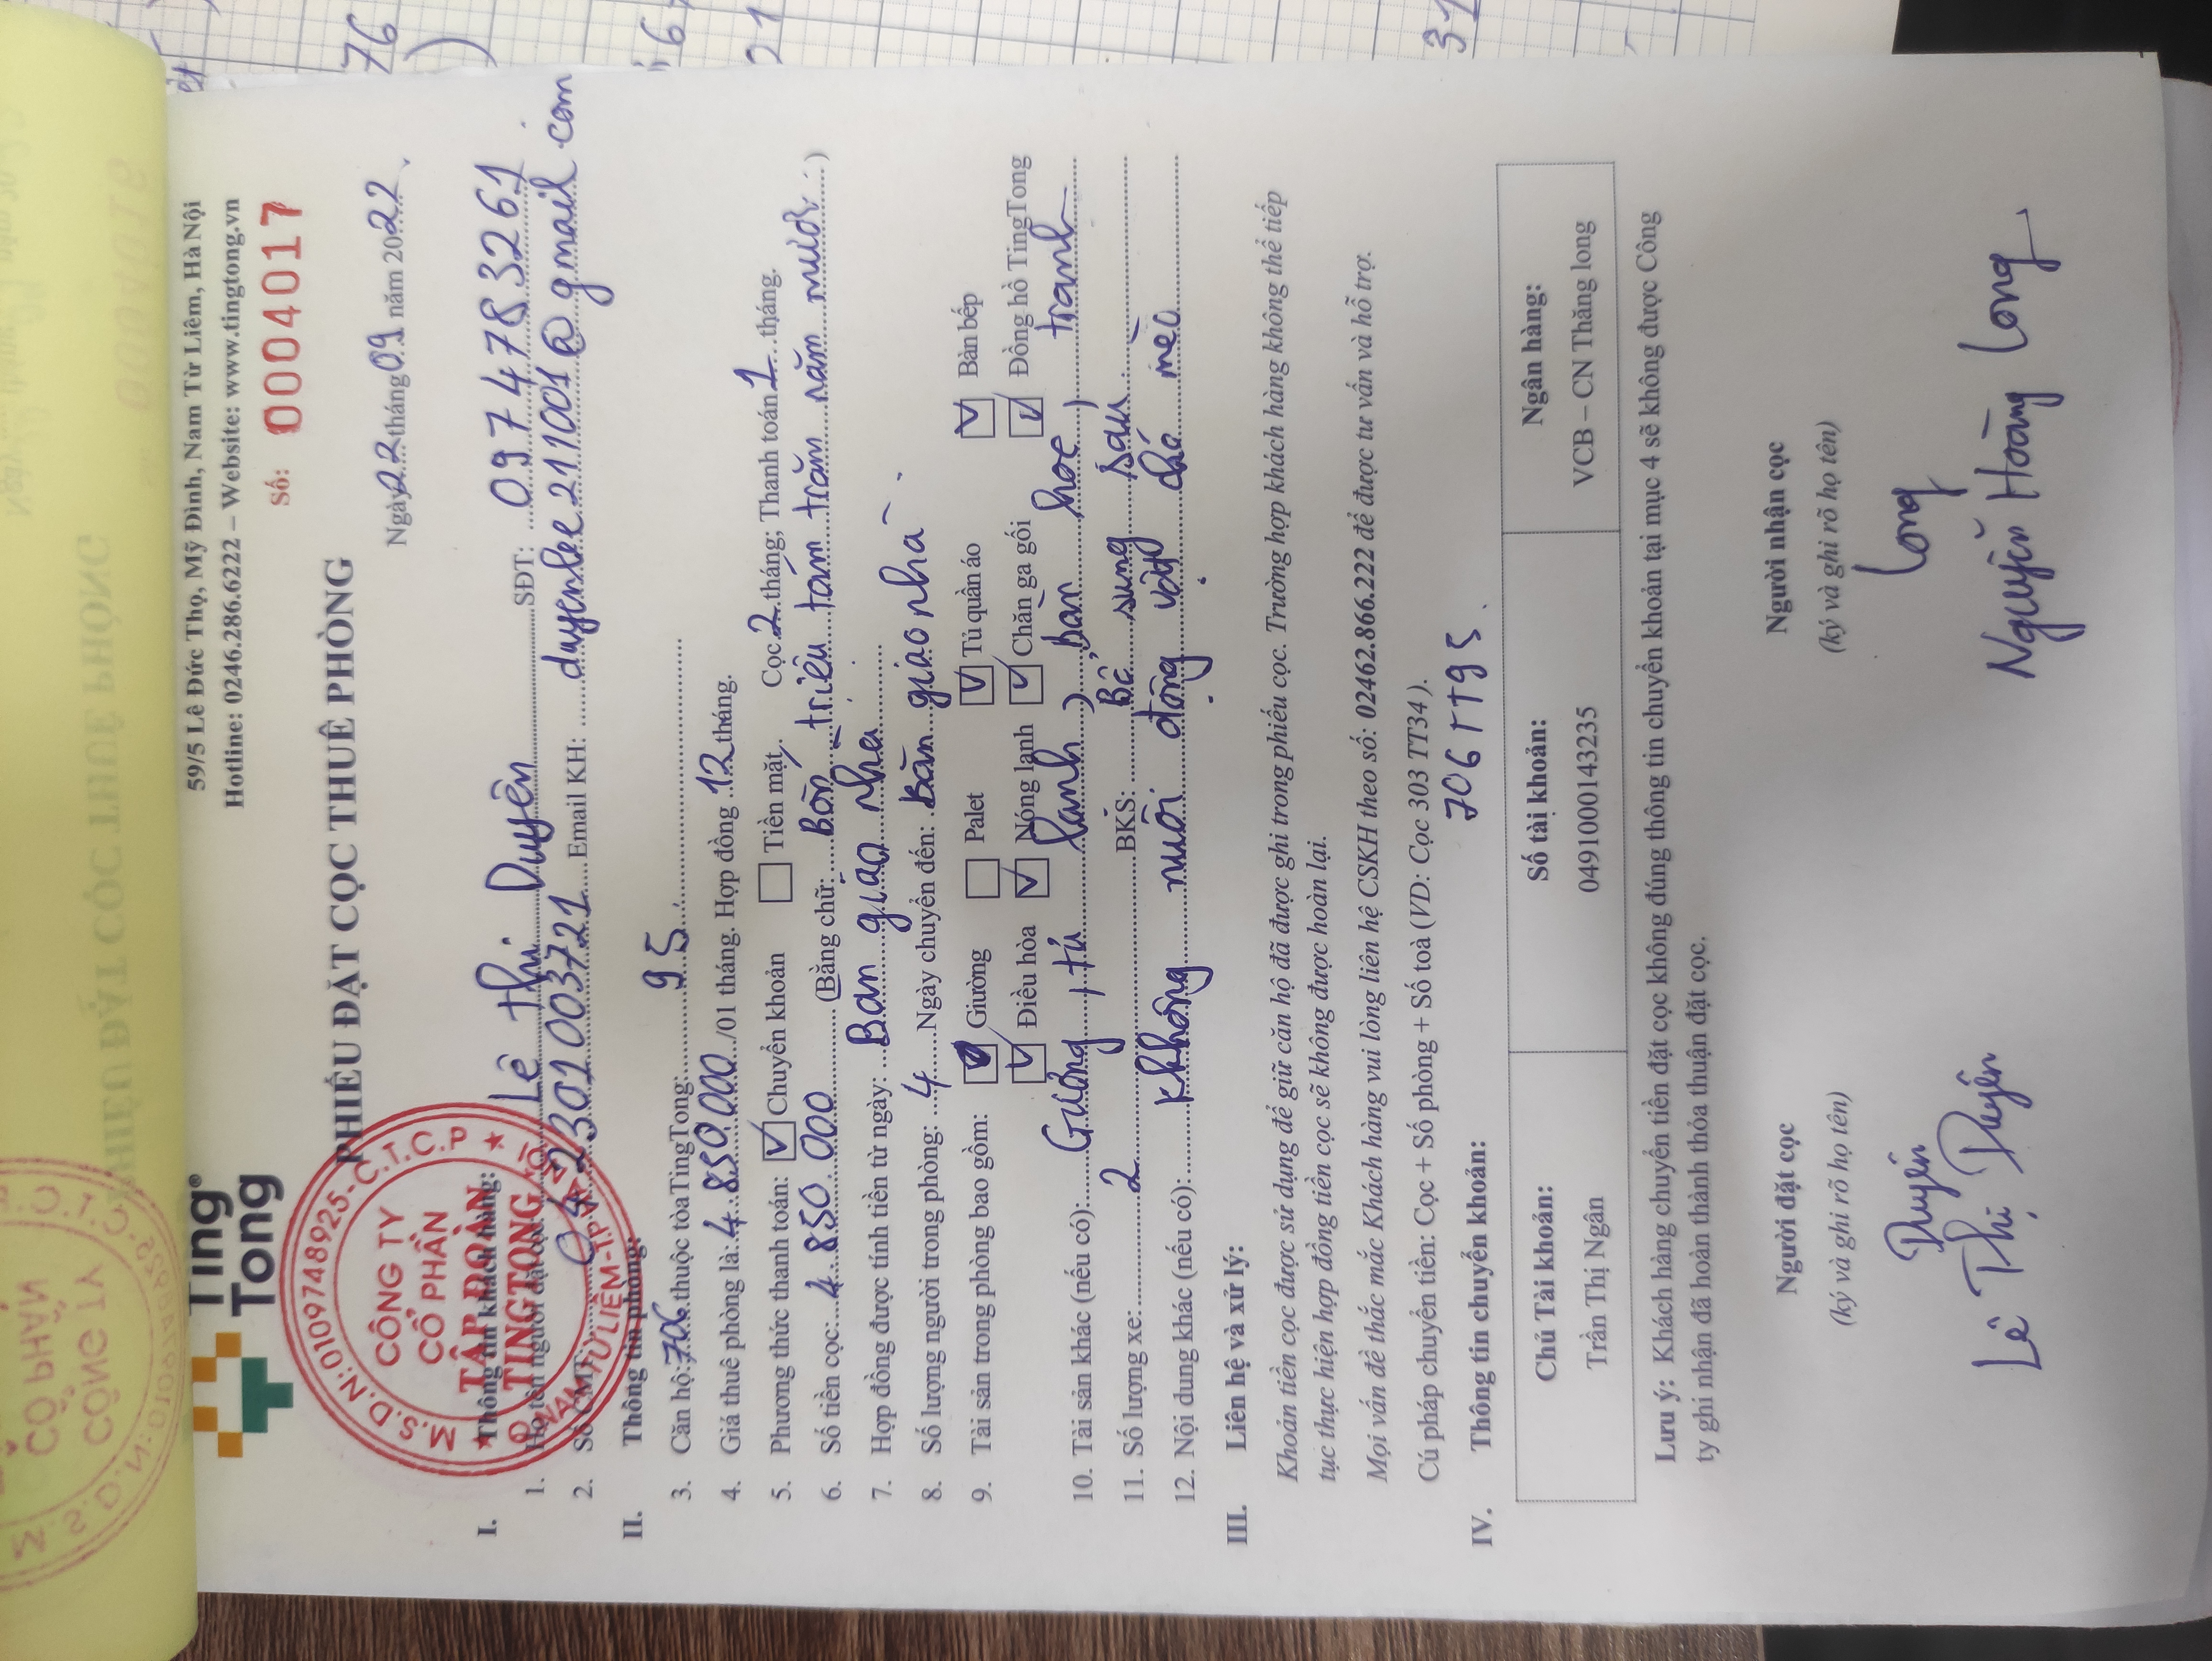 Ting
Tong
59/5 Lê Đức Thọ, Mỹ Đình, Nam Từ Liêm, Hà Nội
Hotline: 0246.286.6222 – Website: www.tingtong.vn
Số: 0004017
PHIẾU ĐẶT CỌC THUÊ PHÒNG
Ngày 22 tháng 09 năm 2022
M.S.D.N:0109748925-C.T.C.P
CÔNG TY
CỔ PHẦN
TẬP ĐOÀN
TINGTONG
I. Thông tin khách hàng:
1. Lê Thị Duyên SĐT: 0974783261
2. Số CMT: 042301003721 Email KH: duyenlee211001@gmail.com
II. Thông tin phòng:
3. Căn hộ: 706 thuộc tòa TingTong: 95
4. Giá thuê phòng là: 4.850.000/01 tháng. Hợp đồng 12 tháng.
5. Phương thức thanh toán: Chuyển khoản Tiền mặt. Cọc 2 tháng; Thanh toán 1 tháng.
6. Số tiền cọc: 4.850.000 (Bằng chữ: Bốn triệu tám trăm năm mươi)
7. Hợp đồng được tính tiền từ ngày: Bàn giao nhà
8. Số lượng người trong phòng: 4 Ngày chuyển đến: Bàn giao nhà
9. Tài sản trong phòng bao gồm: Giường Palet Tủ quần áo Bàn bếp
Điều hòa Nóng lạnh Chăn ga gối Đồng hồ TingTong
10. Tài sản khác (nếu có): Gương, tủ lạnh, bàn học, tranh
11. Số lượng xe: 2 BKS: Bổ sung sau
12. Nội dung khác (nếu có): Không nuôi động vật chó mèo
III. Liên hệ và xử lý:
Khoản tiền cọc được sử dụng để giữ căn hộ đã được ghi trong phiếu cọc. Trường hợp khách hàng không thể tiếp
tục thực hiện hợp đồng tiền cọc sẽ không được hoàn lại.
Mọi vấn đề thắc mắc Khách hàng vui lòng liên hệ CSKH theo số: 02462.866.222 để được tư vấn và hỗ trợ.
Cú pháp chuyển tiền: Cọc + Số phòng + Số toà (VD: Cọc 303 TT34).
706 TT95
IV. Thông tin chuyển khoản:
Chủ Tài khoản: Số tài khoản: Ngân hàng:
Trần Thị Ngân 0491000143235 VCB – CN Thăng long
Lưu ý: Khách hàng chuyển tiền đặt cọc không đúng thông tin chuyển khoản tại mục 4 sẽ không được Công
ty ghi nhận đã hoàn thành thỏa thuận đặt cọc.
Người đặt cọc Người nhận cọc
(ký và ghi rõ họ tên) (ký và ghi rõ họ tên)
Duyên Long
Lê Thị Duyên Nguyễn Hoàng Long